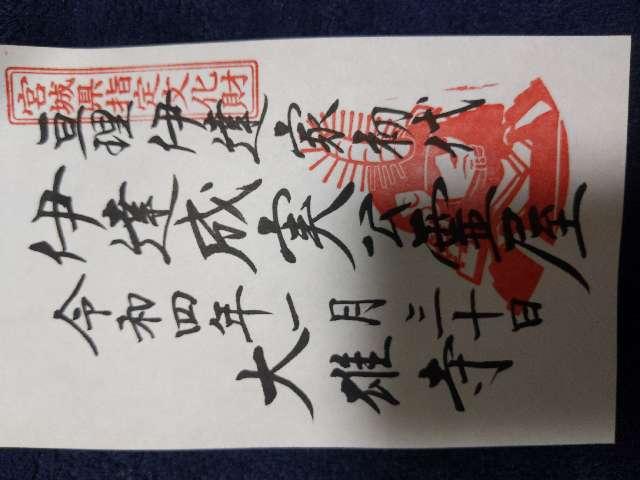 宮城県指定文化財
亘理伊達家初代
伊達成実公霊屋
令和四年一月三十日
大雄寺